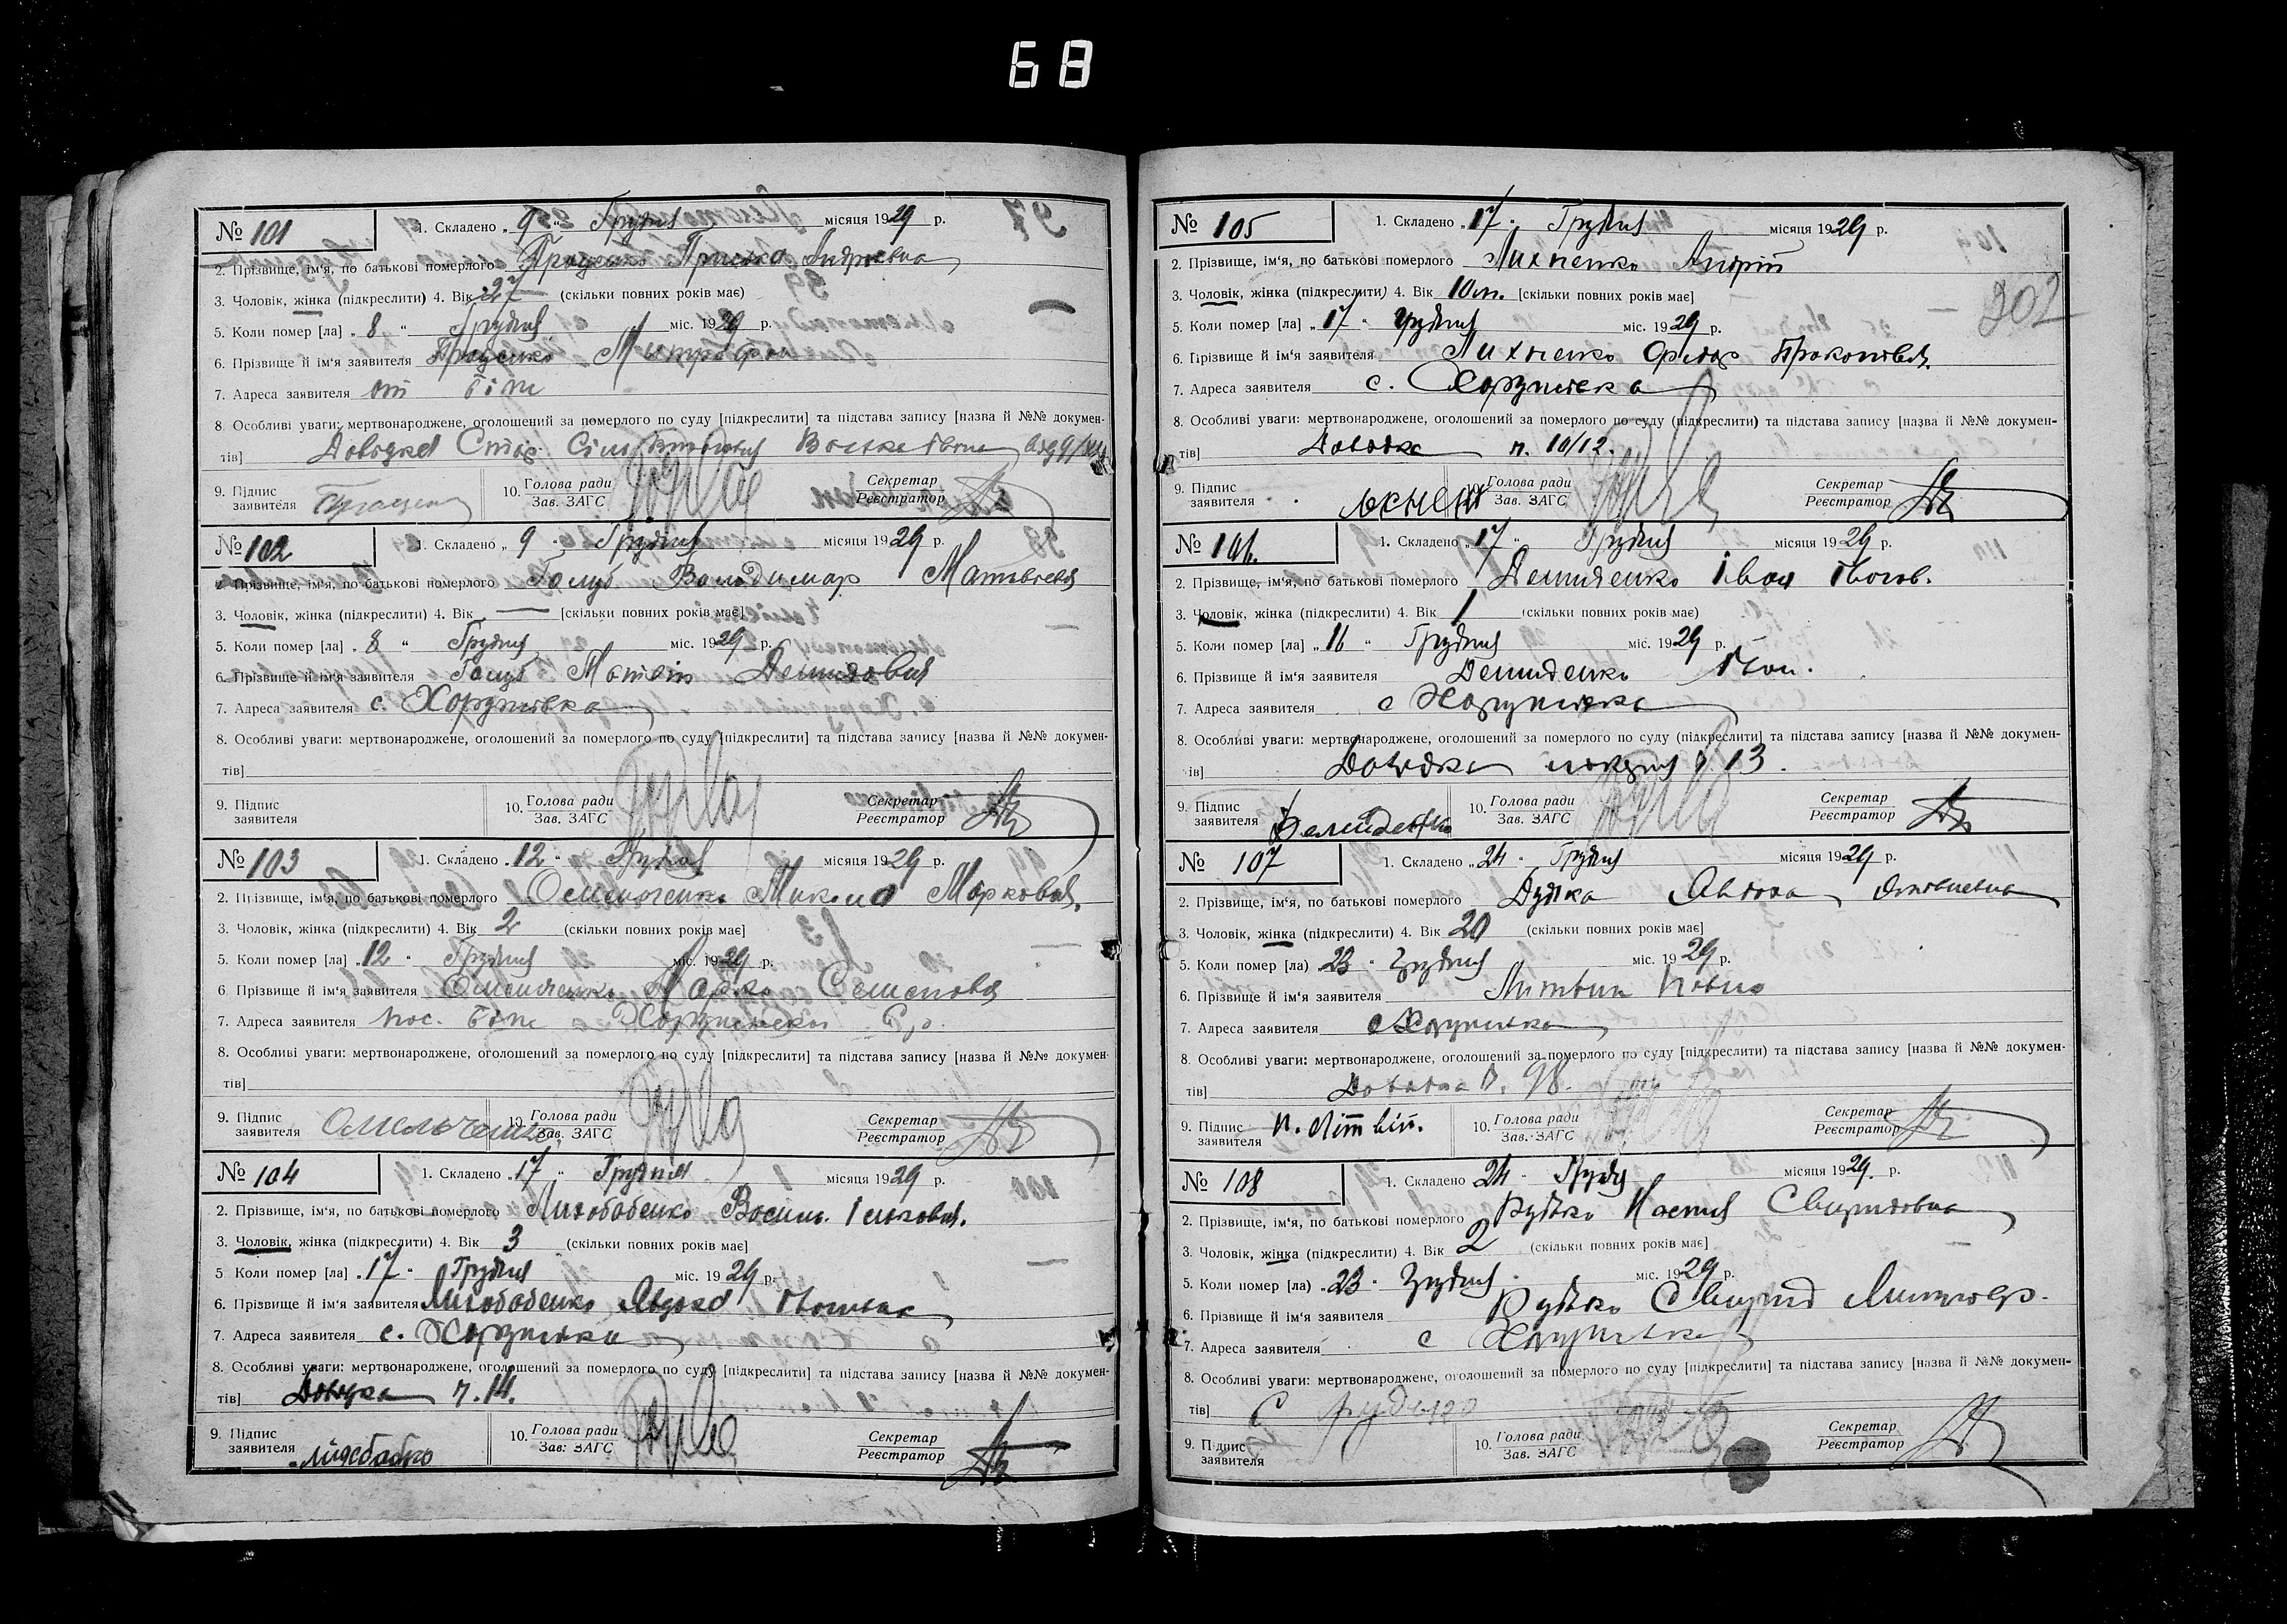 68
№ 101
1. Складено „ 9 “ Грудня місяця 1929 р.
2. Прізвище, ім'я, по батькові померлого Проценко Пріська Андреевна
3. Чоловік, жінка (підкреслити) 4. Вік 27 (скільки повних років має)
5. Коли помер [ла] „ 8 “ Грудня міс. 1929 р.
6. Прізвище й ім'я заявителя Проценко Митрофан
7. Адреса заявителя
8. Особливі уваги: мертвонароджене, оголошений за померлого по суду [підкреслити] та підстава запису [назва й №№ докумен-
тів] Довідка
9. Підпис заявителя
10. Голова ради Зав. ЗАГС
Секретар Реєстратор
№ 102
1. Складено „ 9 “ Грудня місяця 1929 р.
2. Прізвище, ім'я, по батькові померлого Голуб Володимар Матвієвич
3. Чоловік, жінка (підкреслити) 4. Вік — [скільки повних років має]
5. Коли помер [ла] „ 8 “ Грудня міс. 1929 р.
6. Прізвище й ім'я заявителя Голуб Матвій Демидович
7. Адреса заявителя с. Хорунжівка
8. Особливі уваги: мертвонароджене, оголошений за померлого по суду [підкреслити] та підстава запису [назва й №№ докумен-
тів]
9. Підпис заявителя
10. Голова ради Зав. ЗАГС
Секретар Реєстратор
№ 103
1. Складено „ 12 “ Грудня місяця 1929 р.
2. Прізвище, ім'я, по батькові померлого Омельченко Микола Маркович.
3. Чоловік, жінка (підкреслити) 4. Вік 2 (скільки повних років має]
5. Коли помер [ла] „ 12 “ Грудня міс. 1929 р.
6. Прізвище й ім'я заявителя Омельченко Марко Семенович
7. Адреса заявителя
8. Особливі уваги: мертвонароджене, оголошений за померлого по суду [підкреслити] та підстава запису [назва й №№ докумен-
тів]
9. Підпис заявителя Омельченко
10. Голова ради Зав. ЗАГС
Секретар Реєстратор
№ 104
1. Складено „ 17 “ Грудня місяця 1929 р.
2. Прізвище, ім'я, по батькові померлого Лихобабенко Василь Ількович.
3. Чоловік, жінка (підкреслити) 4. Вік 3 (скільки повних років має]
5 Коли помер [ла] „ 17 “ Грудня міс. 1929 р.
6. Прізвище й ім'я заявителя Лихобабенко Явдоха
7. Адреса заявителя с. Хорунжівка
8. Особливі уваги: мертвонароджене, оголошений за померлого по суду [підкреслити] та підстава запису [назва й №№ докумен-
тів] Довідка ч. 14.
9. Підпис заявителя
10. Голова ради Зав: ЗАГС
Секретар Реєстратор
202
№ 105
1. Складено „ 17 “ Грудня місяця 1929 р.
2. Прізвище, ім'я, по батькові померлого Лихненко Андрій
3. Чоловік, жінка (підкреслити) 4. Вік 10 м. [скільки повних років має]
5. Коли помер [ла] „ 17 “ Грудня міс. 1929 р.
6. Прізвище й ім'я заявителя Лихненко Федор Прокопович.
7. Адреса заявителя с. Хорунжівка
8. Особливі уваги: мертвонароджене, оголошений за померлого по суду (підкреслити) та підстава запису [назва й №№ докумен-
тів] Довідка ч. 10/12.
9. Підпис заявителя
10. Голова ради Зав. ЗАГС
Секретар Реєстратор
№ 106.
1. Складено „ 17 “ Грудня місяця 1929 р.
2. Прізвище, ім'я, по батькові померлого Демиденко Іван Івонов.
3. Чоловік, жінка (підкреслити) 4. Вік 1 (скільки повних років має)
5. Коли помер [ла] „ 16 “ Грудня міс. 1929 р.
6. Прізвище й ім'я заявителя Демиденко Івон.
7. Адреса заявителя с Хорунжівка
8. Особливі уваги: мертвонароджене, оголошений за померлого по суду (підкреслити] та підстава запису [назва й №№ докумен-
ів] Довідка 13.
9. Підпис заявителя Демиденко
10. Голова ради Зав. ЗАГС
Секретар Реєстратор
№ 107
1. Складено „ 24 “ Грудня місяця 1929 р.
2. Прізвище, ім'я, по батькові померлого Дудка Явдоха
3. Чоловік, жінка (підкреслити) 4. Вік 20 (скільки повних років має]
5. Коли помер [ла) „ 23 “ Грудня міс. 1929 р.
6. Прізвище й ім'я заявителя Литвин Павло
7. Адреса заявителя с Хорунжівка
8. Особливі уваги: мертвонароджене, оголошений за померлого по суду [підкреслити) та підстава запису [назва й №№ докумен-
тів] Довідка ч. 98.
9. Підпис заявителя п. Літвін.
10. Голова ради Зав. ЗАГС
Секретар Реєстратор
№ 108
1. Складено 24 “ Грудня місяця 1929. р.
2. Прізвище, ім'я, по батькові померлого Рудько Настя Свиридовна
3. Чоловік, жінка (підкреслити) 4. Вік 2 (скільки повних років має]
5. Коли помер [ла) „ 23 “ Грудня міс. 1929 р.
6. Прізвище й ім'я заявителя Рудько Свирид
7. Адреса заявителя с Хорунжівка
8. Особливі уваги: мертвонароджене, оголошений за померлого по суду [підкреслити] та підстава запису [назва й №№ докумен-
тів]
9. Підпис заявителя
10. Голова ради Зав. ЗАГС
Секретар Реєстратор